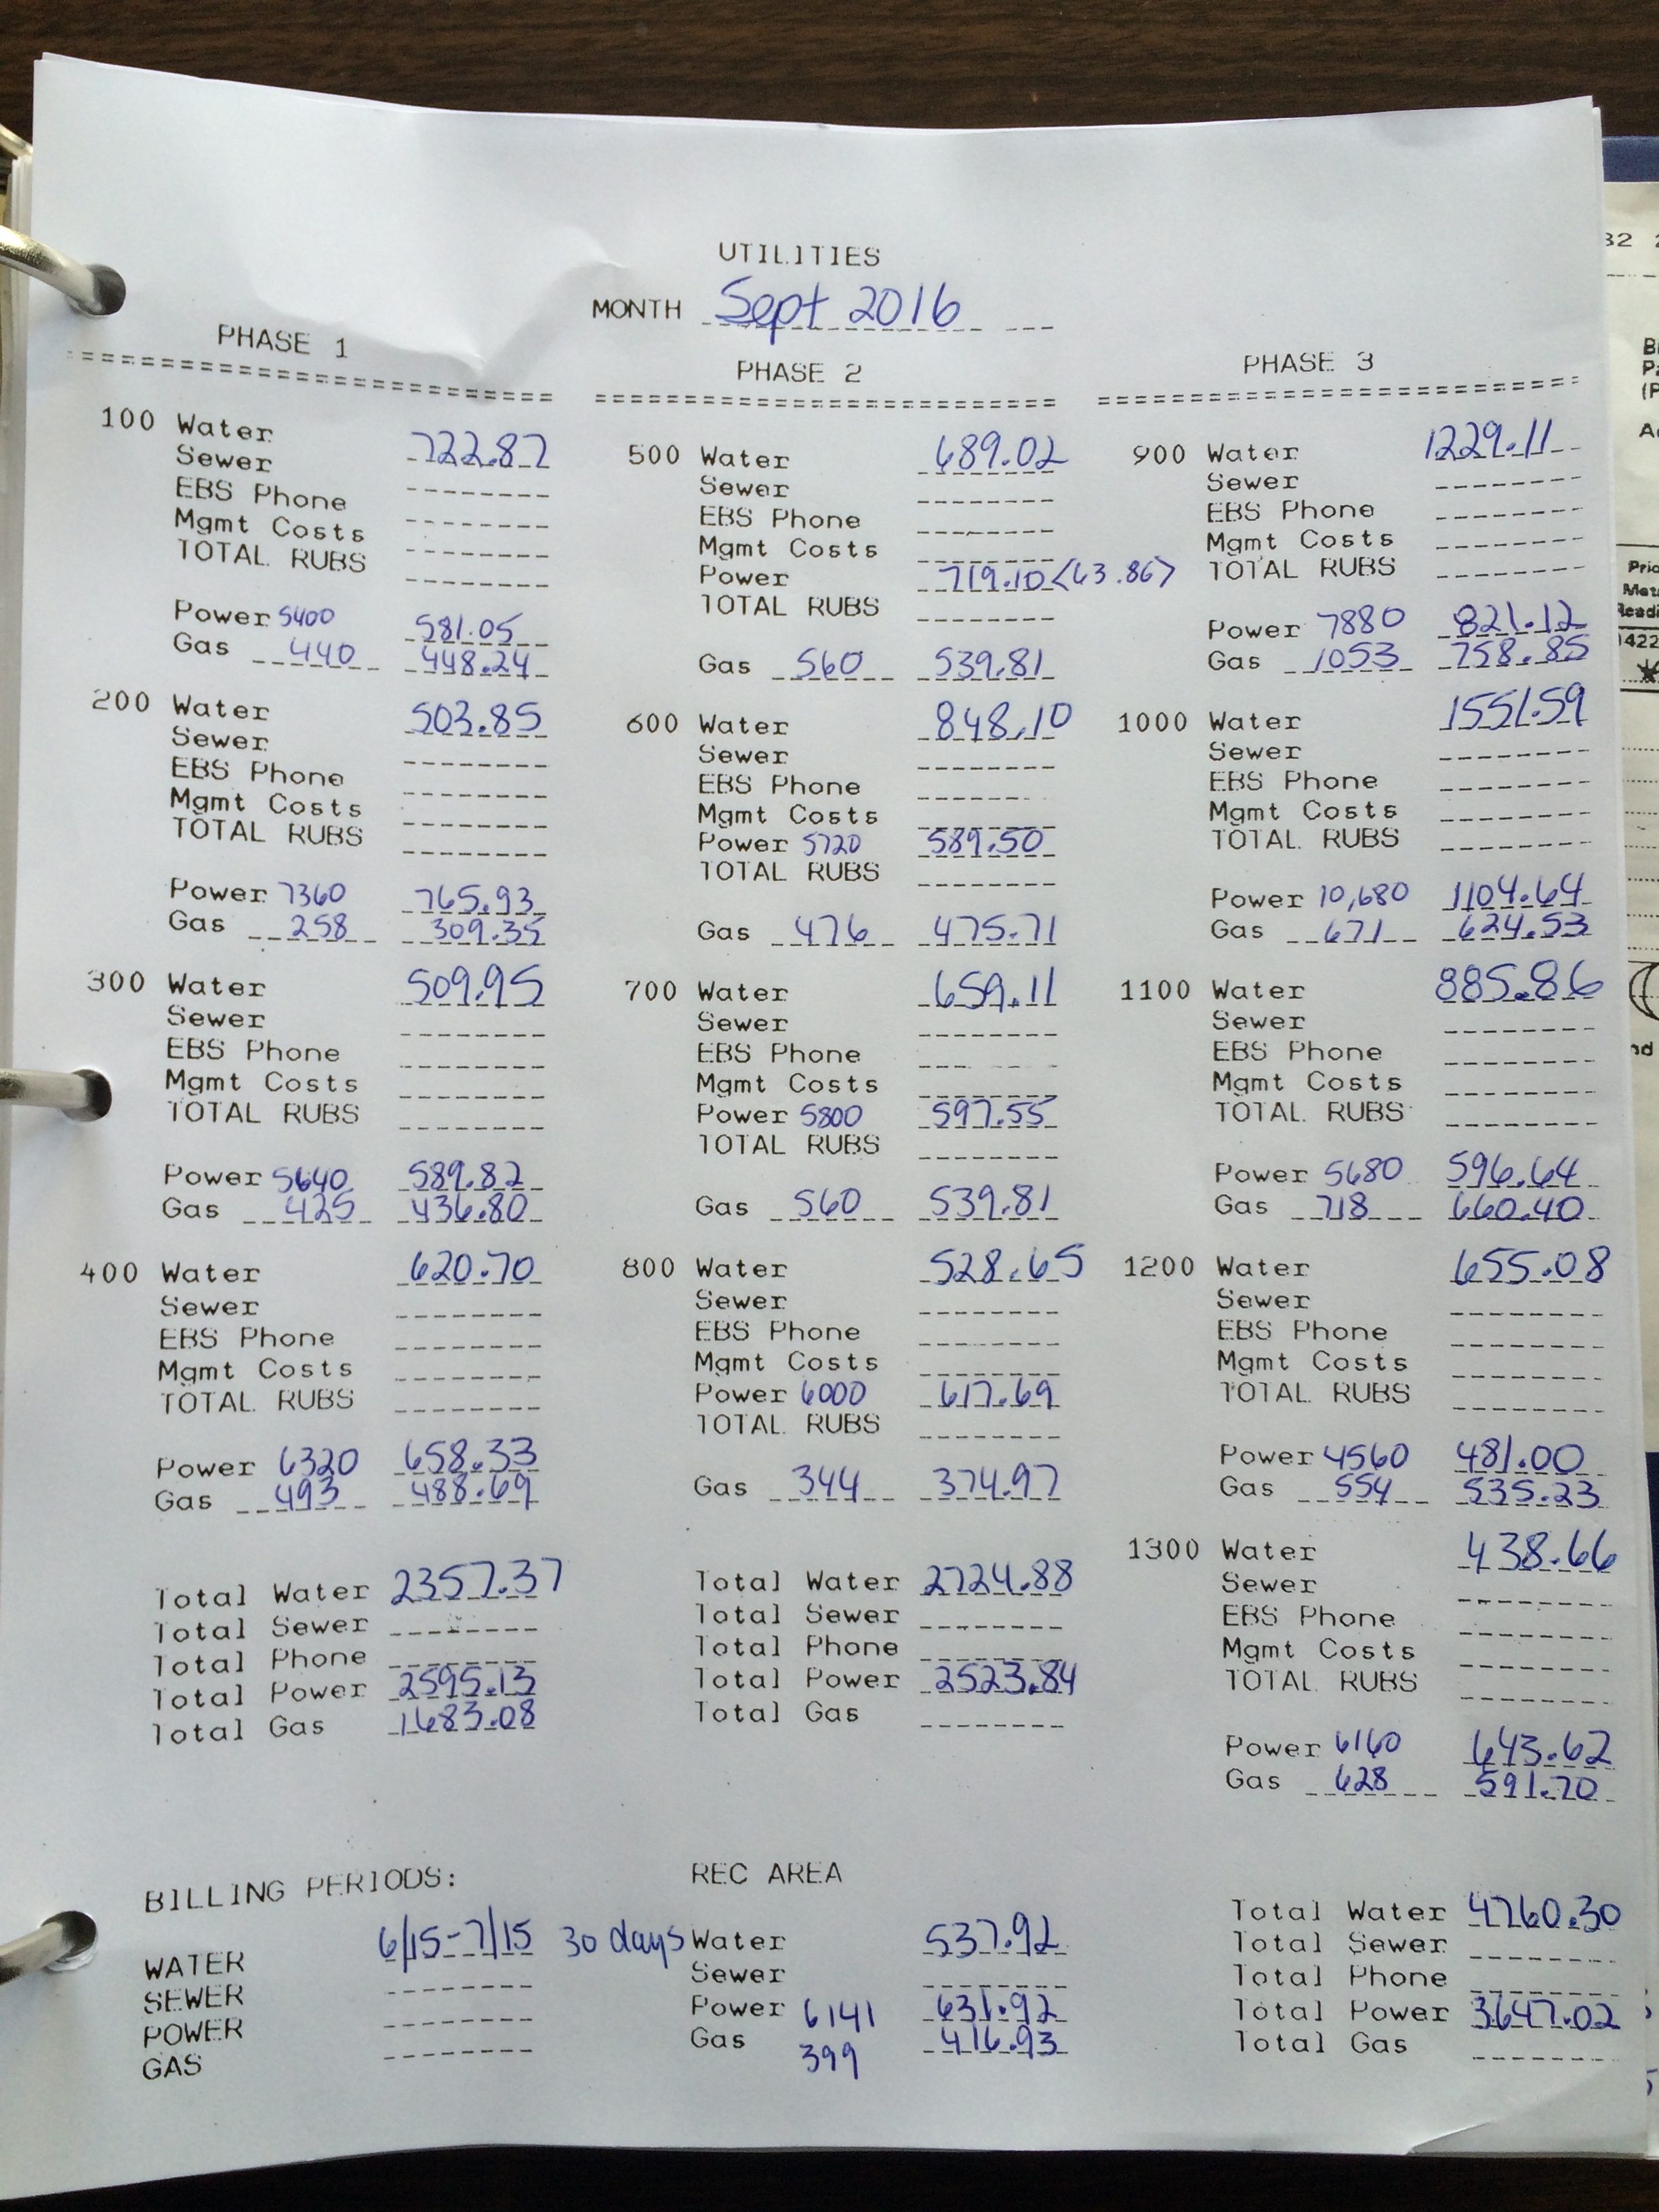 UTILITIES
MONTH Sept 2016
PHASE 1
100 Water 722.87
Sewer
EBS Phone
Mgmt Costs
TOTAL RUBS
Power 5400 581.05
Gas 440 448.24
200 Water 503.85
Sewer
EBS Phone
Mgmt Costs
TOTAL RUBS
Power 7360 765.93
Gas 258 309.35
300 Water 509.95
Sewer
EBS Phone
Mgmt Costs
TOTAL RUBS
Power 5640 589.82
Gas 425 436.80
400 Water 620.70
Sewer
EBS Phone
Mgmt Costs
TOTAL RUBS
Power 6320 658.33
Gas 493 488.69
Total Water 2357.37
Total Sewer
Total Phone
Total Power 2595.13
Total Gas 1683.08
PHASE 2
500 Water 689.02
Sewer
EBS Phone
Mgmt Costs
Power 719.10 <63.86>
TOTAL RUBS
Gas 560 539.81
600 Water 848.10
Sewer
EBS Phone
Mgmt Costs
Power 5720 589.50
TOTAL RUBS
Gas 476 475.71
700 Water 659.11
Sewer
EBS Phone
Mgmt Costs
Power 5800 597.55
TOTAL RUBS
Gas 560 539.81
800 Water 528.65
Sewer
EBS Phone
Mgmt Costs
Power 6000 617.69
TOTAL RUBS
Gas 344 374.97
Total Water 2724.88
Total Sewer
Total Phone
Total Power 2523.84
Total Gas
PHASE 3
900 Water 1229.11
Sewer
EBS Phone
Mgmt Costs
TOTAL RUBS
Power 7880 821.12
Gas 1053 758.85
1000 Water 1551.59
Sewer
EBS Phone
Mgmt Costs
TOTAL RUBS
Power 10,680 1104.64
Gas 671 624.53
1100 Water 885.86
Sewer
EBS Phone
Mgmt Costs
TOTAL RUBS
Power 5680 596.64
Gas 718 660.40
1200 Water 655.08
Sewer
EBS Phone
Mgmt Costs
TOTAL RUBS
Power 4560 481.00
Gas 554 535.23
1300 Water 438.66
Sewer
EBS Phone
Mgmt Costs
TOTAL RUBS
Power 6160 643.62
Gas 628 591.70
Total Water 4760.30
Total Sewer
Total Phone
Total Power 3647.02
Total Gas
BILLING PERIODS:
WATER 6/15-7/15 30 days
SEWER
POWER
GAS
REC AREA
Water 537.92
Sewer
Power 6141 631.92
Gas 399 416.93